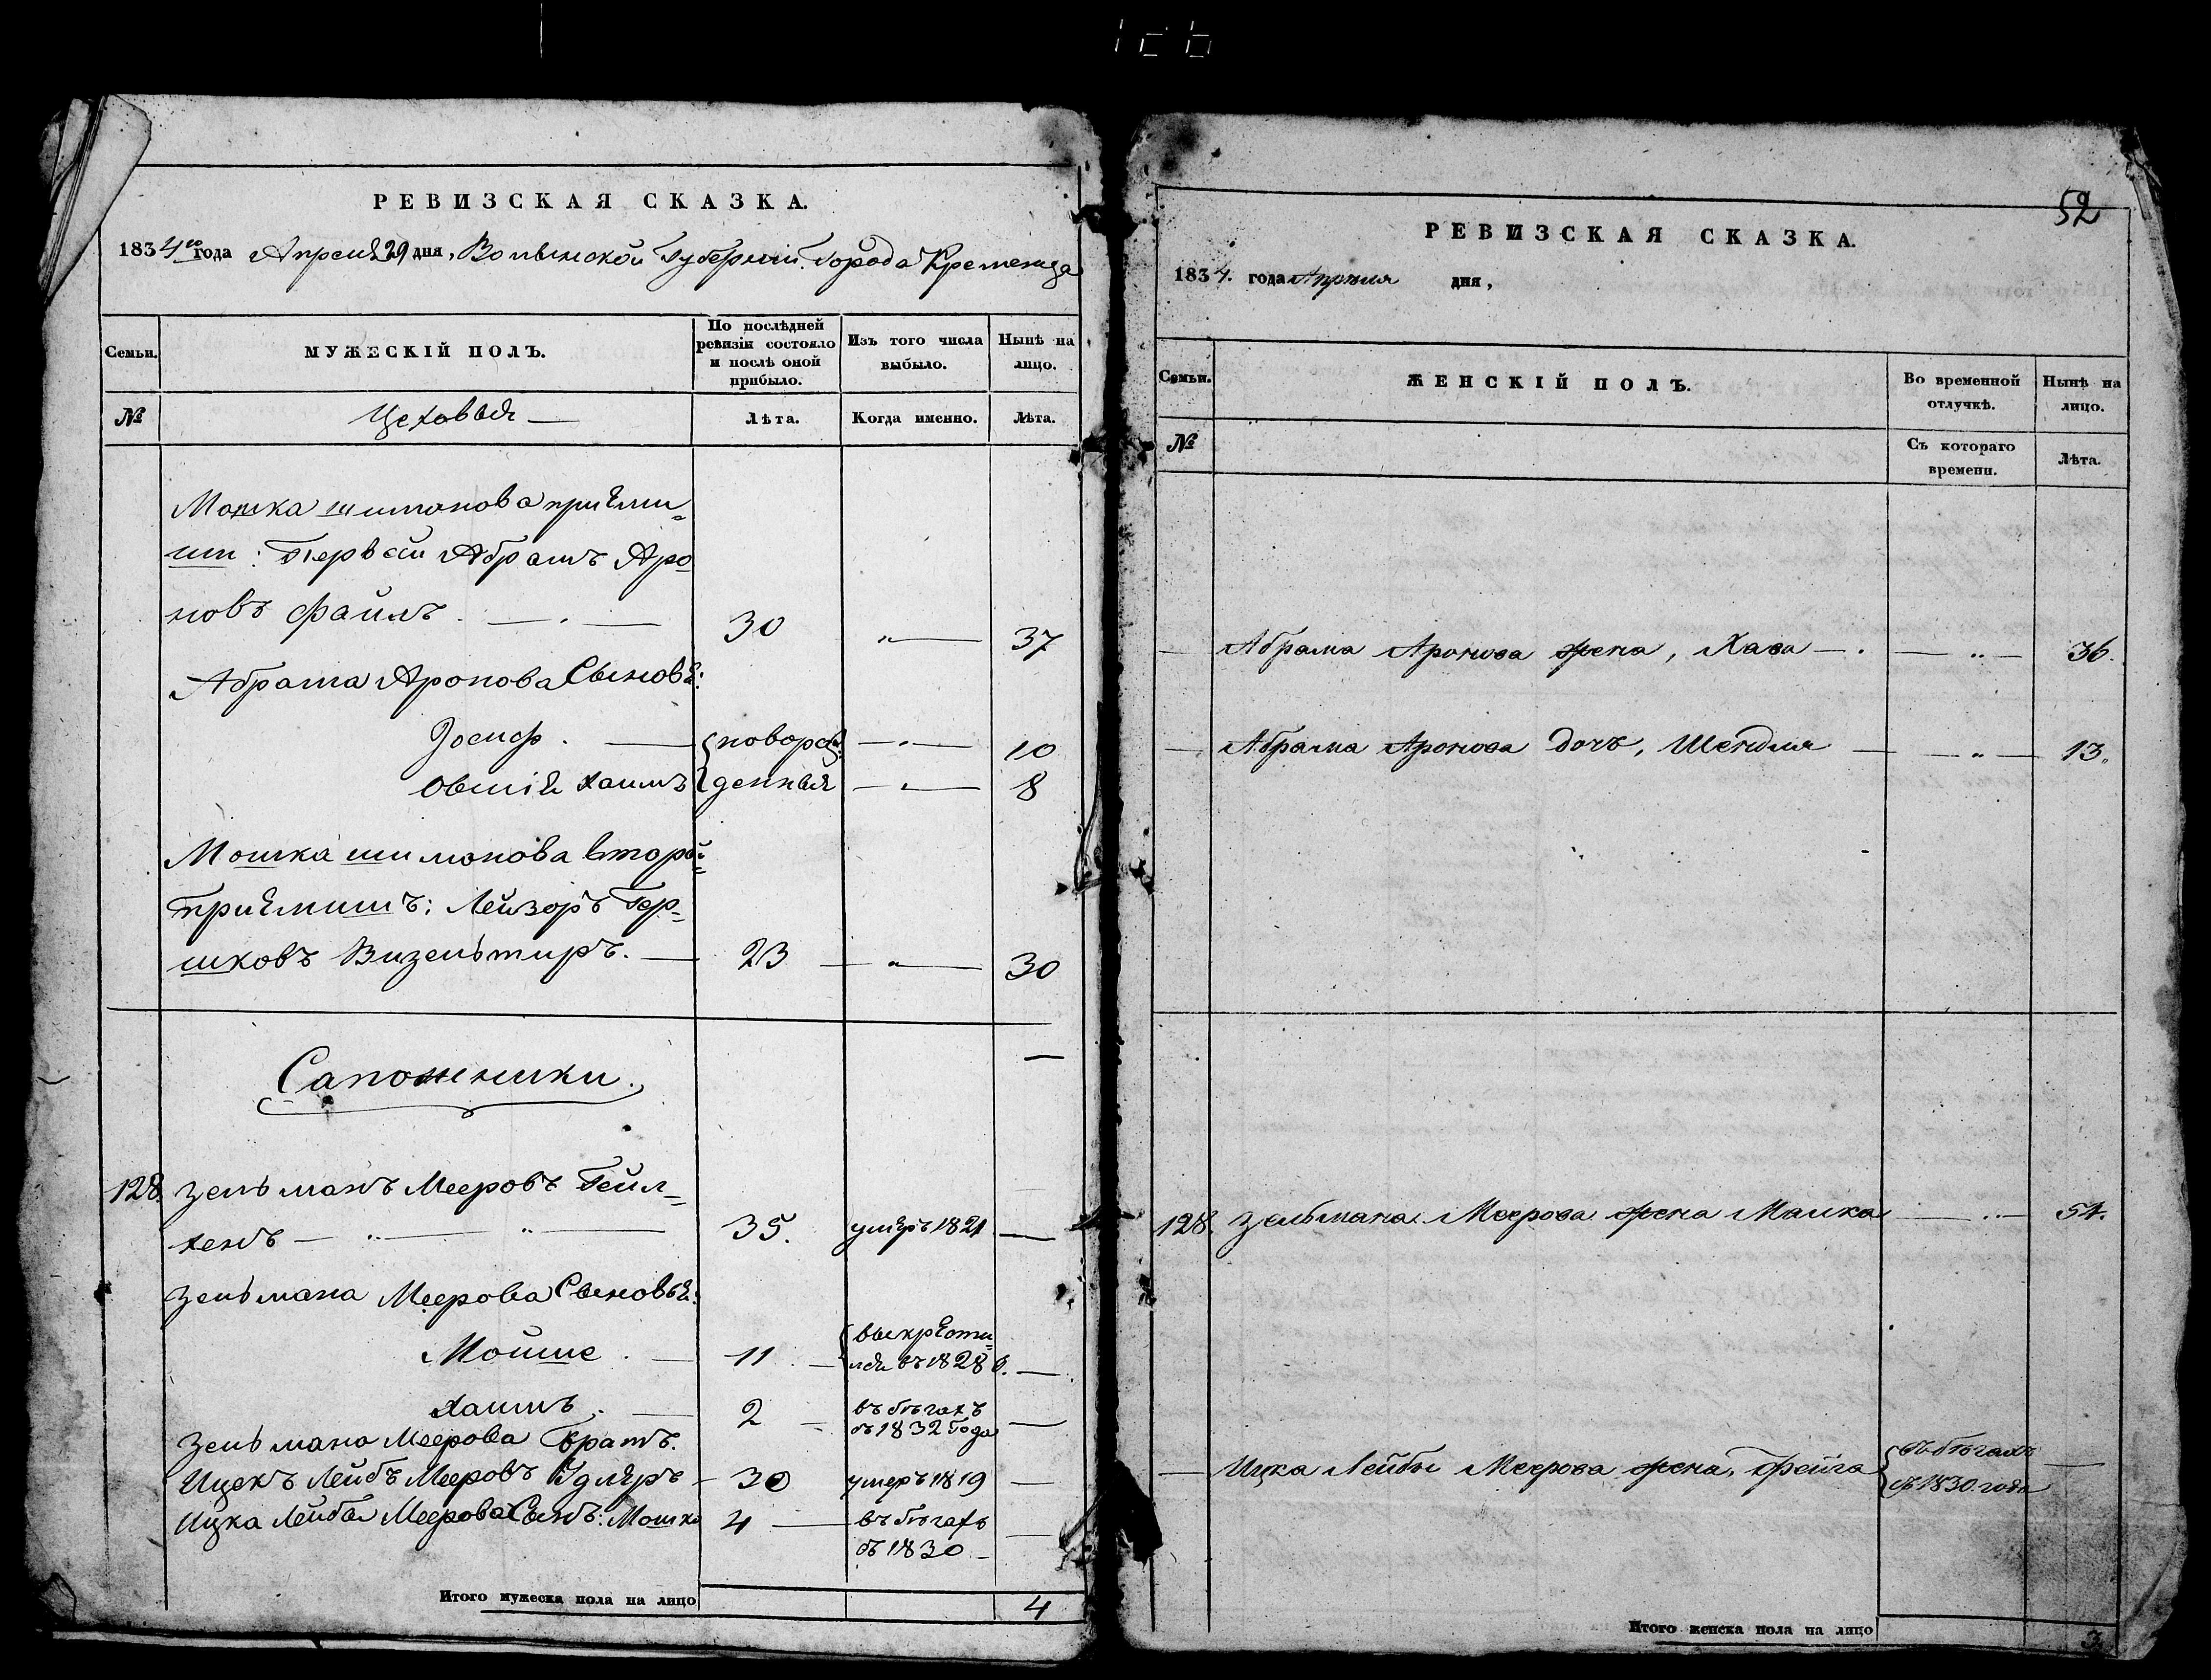 52
РЕВИЗСКАЯ СКАЗКА.
1834го года Апреля 29 дня, Волынской Губерніи Города Кременца
Семьи.
МУЖЕСКІЙ ПОЛЪ.
По послѣдней ревизіи состояло и послѣ оной прибыло.
Изъ того числа выбыло.
Нынѣ на лицо.
№
Цеховыя —
Лѣта.
Когда именно.
Лѣта.
Мошка Шимонова приеми-
ши: Первой Абрамъ Аро
новъ Файлъ. — 30 „— 37
Абрама Аронова Сыновя:
Іосиф. — новорож — „ — 10
Овшія Хаимъ денныя — „ — 8
Мошка Шимонова второй
приемишъ: Лейзоръ Гер-
шковъ Визельтиръ. — 23 — „ — 30
Сапожники.
128. Зельманъ Мееровъ Гейл-
хенъ — „ — „ — 35. умеръ 1821 —
Зельмана Меерова Сыновья:
Мойше. — 11. — выкрести
лся въ 1828 г. —
Хаимъ. — 2 — въ бѣгахъ
съ 1832 Года —
Зельмана Меерова Братъ.
Ицекъ Лейбъ Мееровъ — 30 умеръ 1819 —
Ицка Лейбы Меерова Сынъ: Мошко 4 — въ бѣгахъ —
съ 1830 —
Итого мужеска пола на лицо 4
РЕВИЗСКАЯ СКАЗКА.
1834. года Апреля дня,
Семьи.
ЖЕНСКІЙ ПОЛЪ.
Во временной отлучкѣ.
Нынѣ на лицо.
№
Съ котораго времени.
Лѣта.
— Абрама Аронова жена, Хава — . — „ — 36.
— Абрама Аронова дочь, Шендля — — „ — 13.
128. Зельмана Меерова жена Малка — „ — 54.
— Ицка Лейбы Меерова жена, Фейга въ бѣгахъ —
съ 1830. года
Итого женска пола на лицо 3